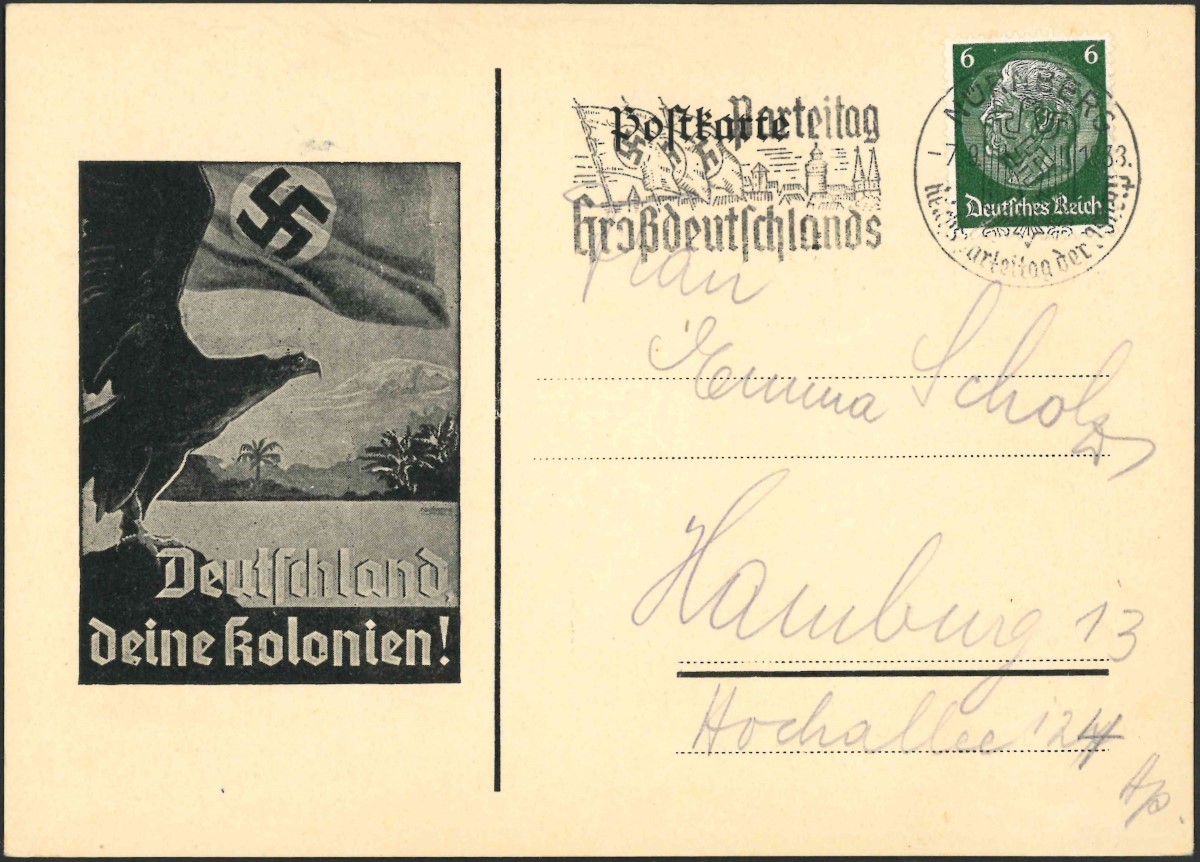 6 6
Deutsches Reich
NÜRNBERG
Reichsparteitag der
Parteitag
Großdeutschlands
Postkarte
Frau
Emma Scholz
Hamburg 13
Hochallee 124
Deutschland,
deine Kolonien!